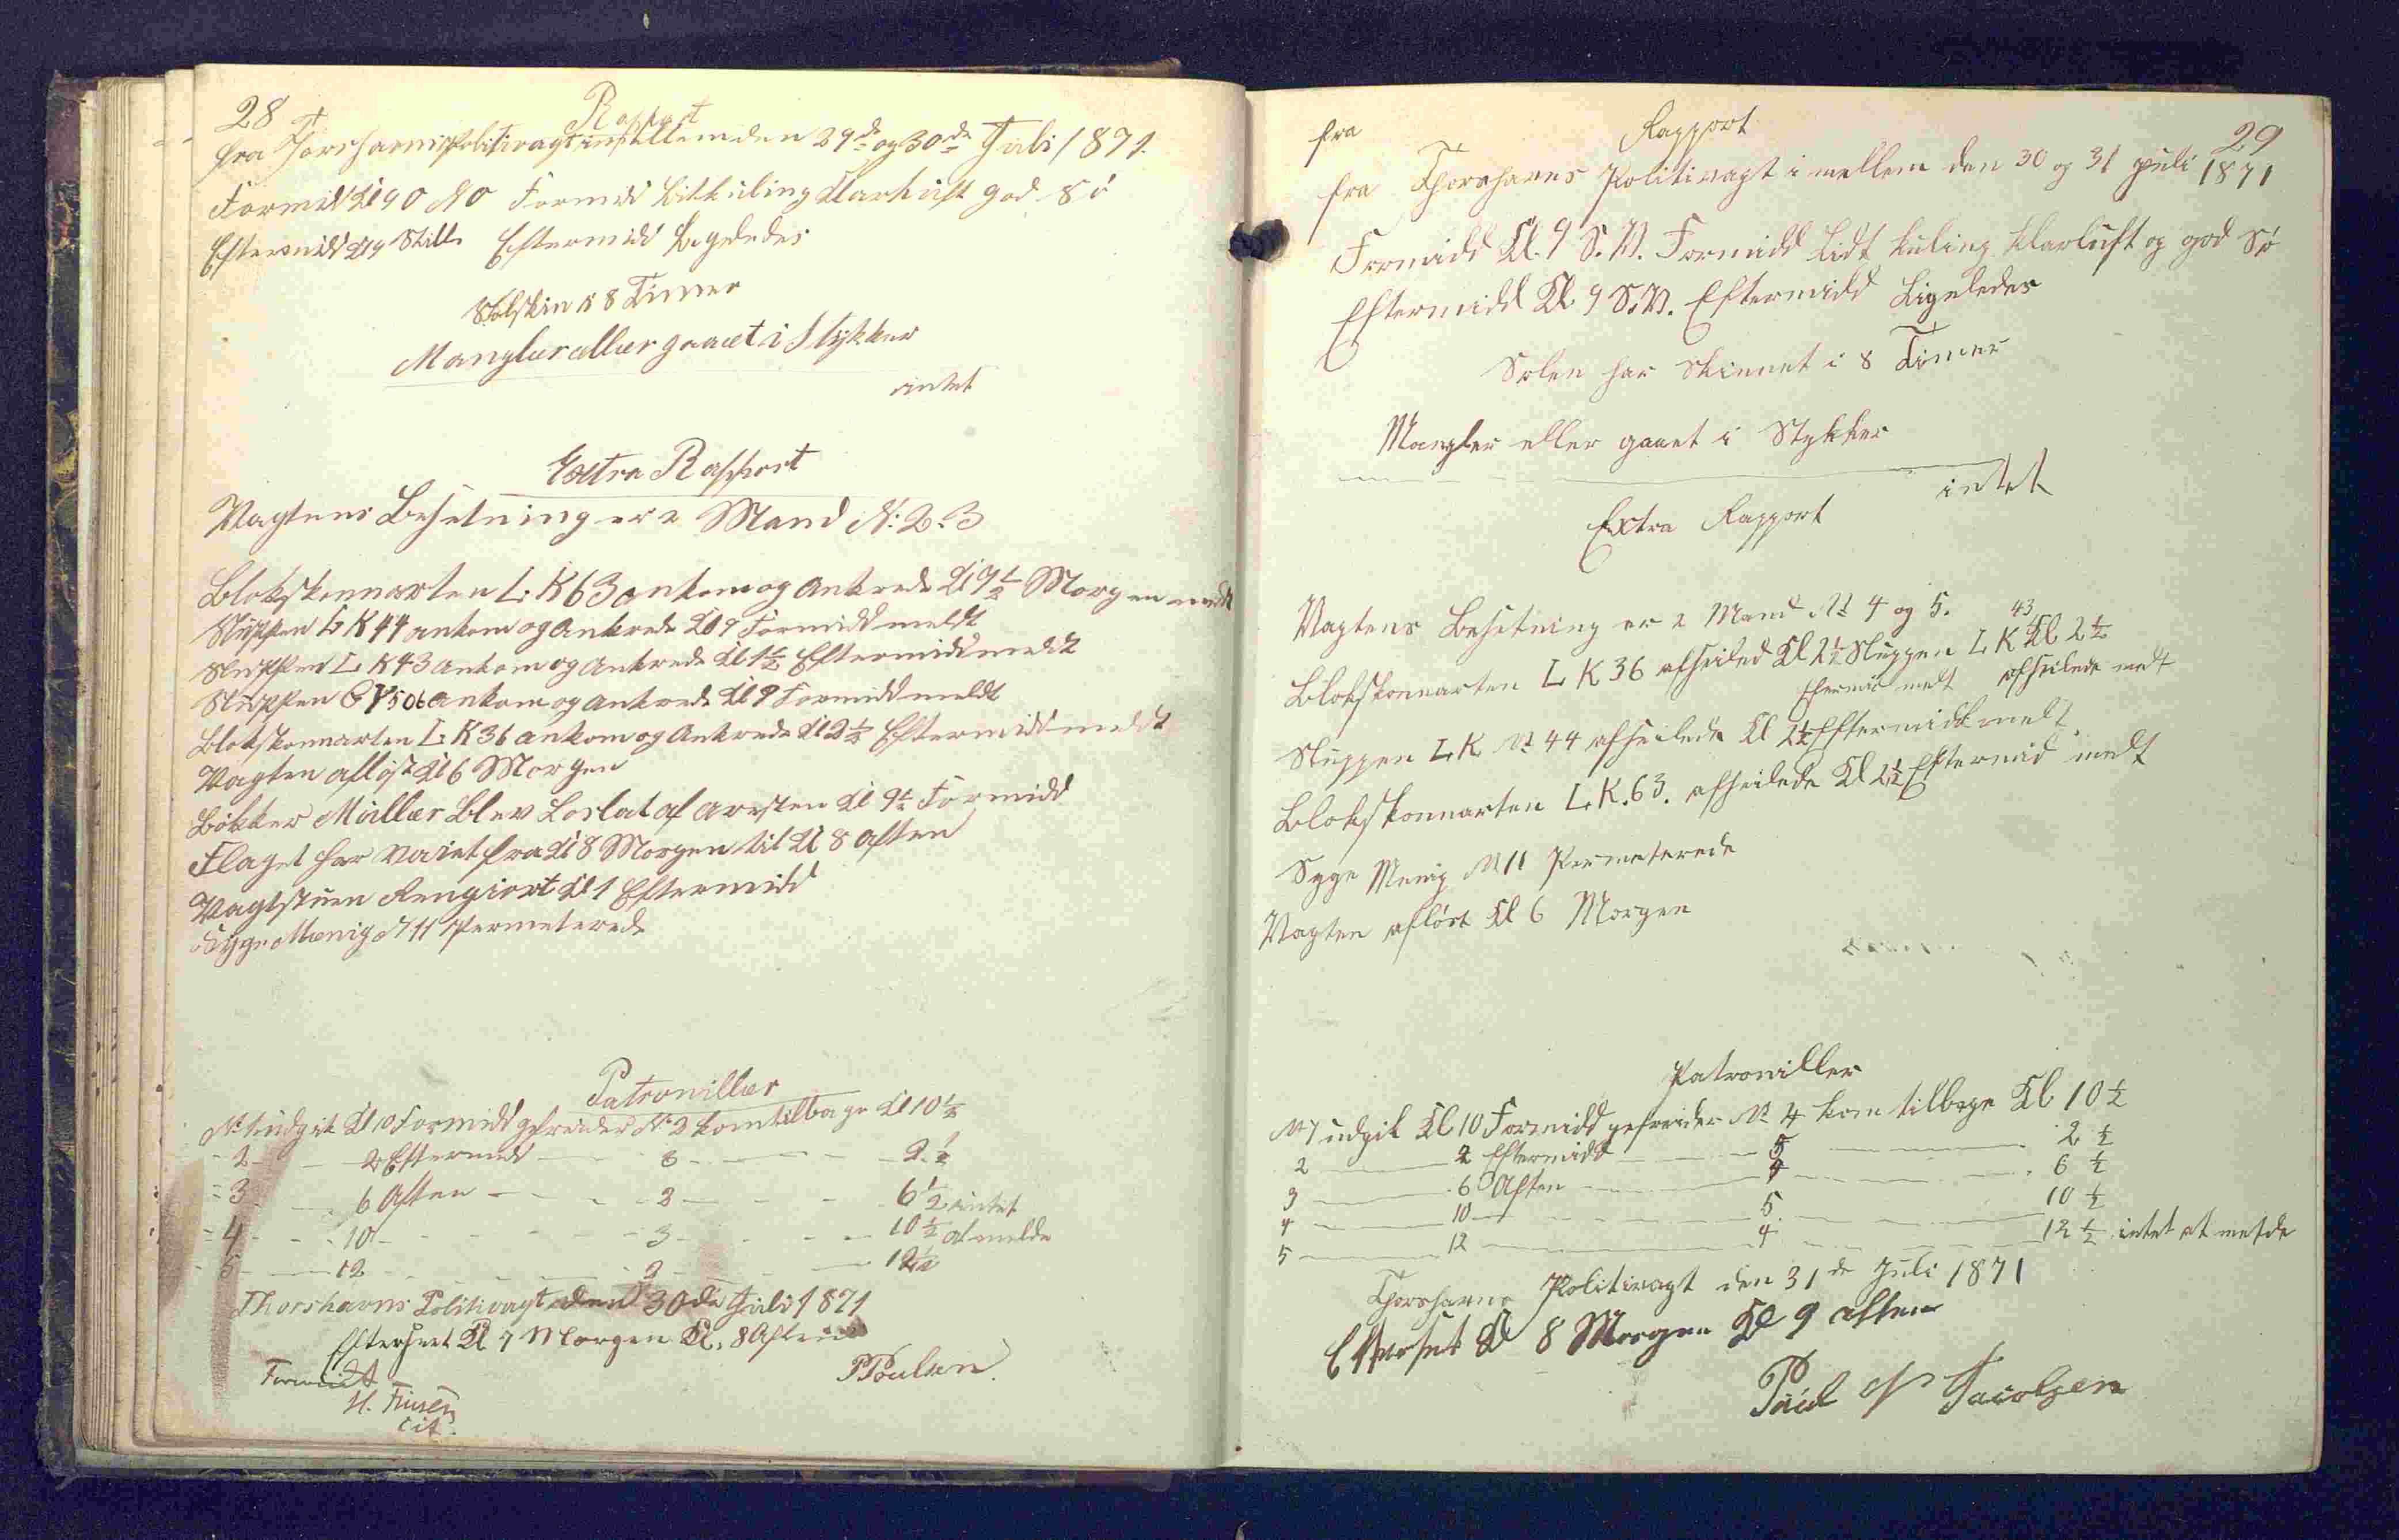 28
Rapport
fra Thorshavns Politivagt imellem den 29de og 30de Juli 1871.
Formidd Kl 9 O NO Formidd Lidt Kuling Klarluft god Sö
Eftermidd Kl 9 Stille Eftermidd Ligeledes
Solskin i 8 Timer
Mangler eller gaaet i Stykker
intet
Extra Rapport
Vagtens Besetning er 2 Mand N: 2. 3
Blokskonnarten L. K 63 ankom og Ankrede Kl 9½ Morgen meldt
Sluppen L K 44 ankom og Ankrede Kl 9 Formidd meldt
Sluppen L K 43 Ankom og Ankrede Kl 1½ Eftermidd meldt
Sluppen GY 506 Ankom og Ankrede Kl 9 Formidd meldt
Blokskonnarten L. K 36 ankom og Ankrede Kl 2½ Eftermidd meldt
Vagten aflöst Kl 6 Morgen
Bökker Müller Blev Loslat af Aresten Kl 9½ Formidd
Flaget har vaiet fra Kl 8 Morgen til Kl 8 Aften
Vagtstuen Rengiort Kl 1 Eftermidd
Syge Menig N 11 Permeterede
Patrouiller
N: 1 udgik Kl 10 Formidd gefreider N: 2 kom tilbage Kl 10½
- 2 - - 2 Eftermid - 3 - - - 2½
- 3 - - 6 Aften - - - 2 - - - 6½ intet
- 4 - - 10 - - - - 3 - - - 10½ at melde
- 5 - - 12 - - - - 2 - - - 12½
Thorshavns Politivagt den 30de Juli 1871
Efterseet Kl 7 Morgen Kl. 8 Aften
Formidt
H. Finsen
cit.
P Poulsen.
29
fra
Rapport
fra Thorshavns Politivagt i mellem den 30 og 31 Juli 1871
Formidd Kl. 9 S. V. Formidd Lidt kuling klarluft og god Sö
Eftermidd Kl. 9 S. V. Eftermidd Ligeledes
Solen har Skinnet i 8 Timer
Mangler eller gaaet i Stykker
intet
Extra Rapport
Vagtens Besetning er 2 Mand N: 4 og 5.
Blokskonnarten L K 36 afseiled Kl 2½ Sluppen L K 43 Kl 2½
Efermid melt afseilede melt
Sluppen L K N: 44 afseilede Kl 2½ Eftermidd melt
Blokskonnarten L. K. 63. afseilede Kl 2½ Eftermid melt
Syge Menig N 11 Permeterede
Vagten aflöst Kl 6 Morgen
Patrouiller
N 1 udgik Kl 10 Formidd gefreider N: 4 kom tilbage Kl 10½
2 - 2 Eftermidd - 5 - 2½
3 - 6 Aften - 4 - 6½
4 - 10 - 5 - 10½
5 - 12 - 4 - 12½ intet at melde
Thorshavns Politivagt den 31de Juli 1871
Efterset Kl 8 Morgen Kl 9 aften